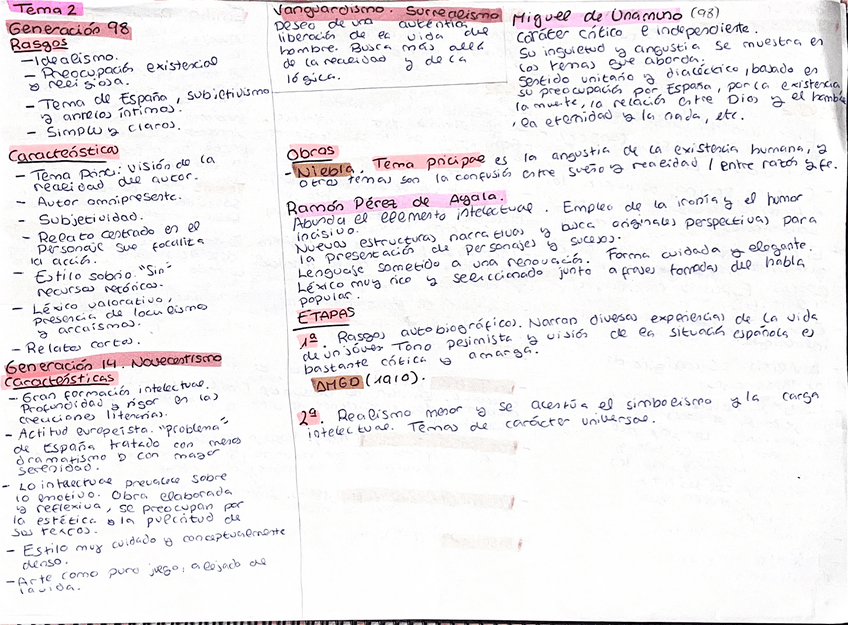 Tema 2
Generación 98
Rasgos
- Idealismo.
- Preocupación existencial
y religiosa.
- Tema de España, subjetivismo
y anhelos íntimos.
- Simple y claros.
Característica
- Tema princ: visión de la
realidad del autor.
- Autor omnipresente.
- Subjetividad.
- Relato centrado en el
personaje que focaliza
la acción.
- Estilo sobrio. "Sin"
recursos retóricos.
- Léxico valorativo,
presencia de localismo
y arcaísmos.
- Relatos cortos.
Generación 14. Novecentismo
Características
- Gran formación intelectual.
Profundidad y rigor en las
creaciones literarias.
- Actitud europeísta. "problema"
de España tratado con menos
dramatismo o con mayor
serenidad.
- Lo intelectual prevalece sobre
lo emotivo. Obra elaborada
y reflexiva, se preocupan por
la estética y la pulcritud de
sus textos.
- Estilo muy cuidado y conceptualmente
denso.
- Arte como puro juego, alejado de
la vida.
Vanguardismo. Surrealismo
Deseo de una auténtica
liberación de la vida del
hombre. Busca más allá
de la realidad y de la
lógica.
Miguel de Unamuno (98)
Carácter crítico e independiente.
Su inquietud y angustia se muestra en
los temas que aborda.
Sentido unitario y dialéctico, basado en
su preocupación por España, por la existencia
la muerte, la relación entre Dios y el hombre
, la eternidad y la nada, etc.
Obras
- Niebla. Tema pricipal es la angustia de la existencia humana, y
otros temas son la confusión entre sueño y realidad / entre razón y fe.
Ramón Pérez de Ayala.
Abunda el elemento intelectual. Empleo de la ironía y el humor
incisivo.
Nuevas estructuras narrativas y busca originales perspectivas para
la presentación de personajes y sucesos.
Lenguaje sometido a una renovación. Forma cuidada y elegante.
Léxico muy rico y seleccionado junto a frases tomadas del habla
popular.
ETAPAS
1ª. Rasgos autobiográficos. Narran diversas experiencias de la vida
de un jóven Tono pesimista y visión de la situación española es
bastante crítica y amarga.
AMGD (1910).
2ª. Realismo menor y se acentúa el simbolismo y la carga
intelectual. Temas de carácter universal.